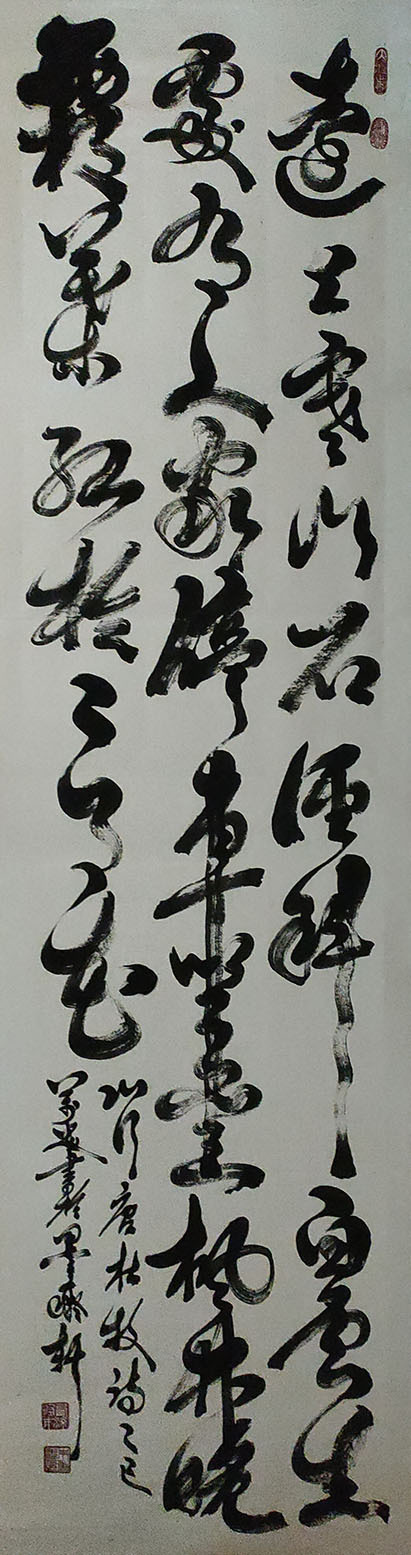 遠上寒山石徑斜白雲生
處有人家停車坐愛楓林晚
霜葉紅於二月花
山行唐杜牧詩乙巳
書於墨軒